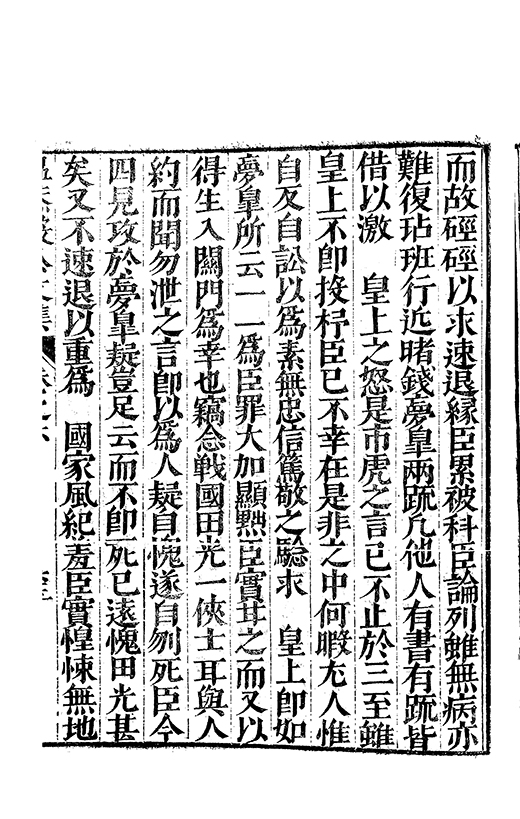 而故硜硜以求速退緣臣累被科臣論列雖無病亦
難復玷班行近睹錢夢皐兩疏凡他人有書有疏皆
借以激　皇上之怒是市虎之言已不止於三至雖
皇上不卽投杼臣已不幸在是非之中何暇尤人惟
自反自訟以爲素無忠信篤敬之騐求　皇上卽如
夢皐所云一一爲臣罪大加顯黜臣實甘之而又以
得生入關門爲幸也竊念戰國田光一俠士耳與人
約而聞勿泄之言卽以爲人疑自愧遂自刎死臣今
四見攻於夢皐疑豈足云而不卽死已遠愧田光甚
矣又不速退以重爲　國家風紀羞臣實惶悚無地